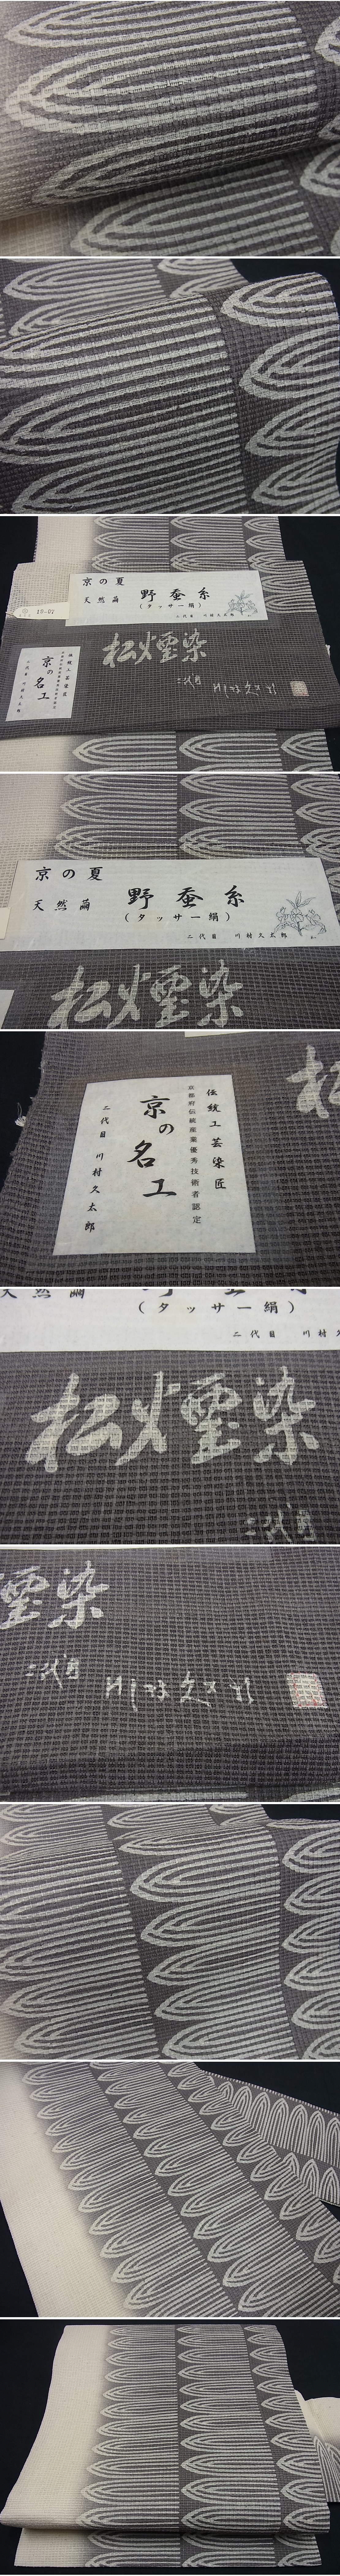 京の夏
天然繭
野蚕糸
(タッサー絹)
二代目 川村久太郎
10-07
伝統工芸染匠
京都府伝統産業優秀技術者認定
京の名工
二代目 川村久太郎
松煙染
二代目
京の夏
天然繭
野蚕糸
(タッサー絹)
二代目 川村久太郎
松煙染
伝統工芸染匠
京都府伝統産業優秀技術者認定
京の名工
二代目 川村久太郎
(タッサー絹)
二代目 川村
松煙染
二代目
煙染
二代目